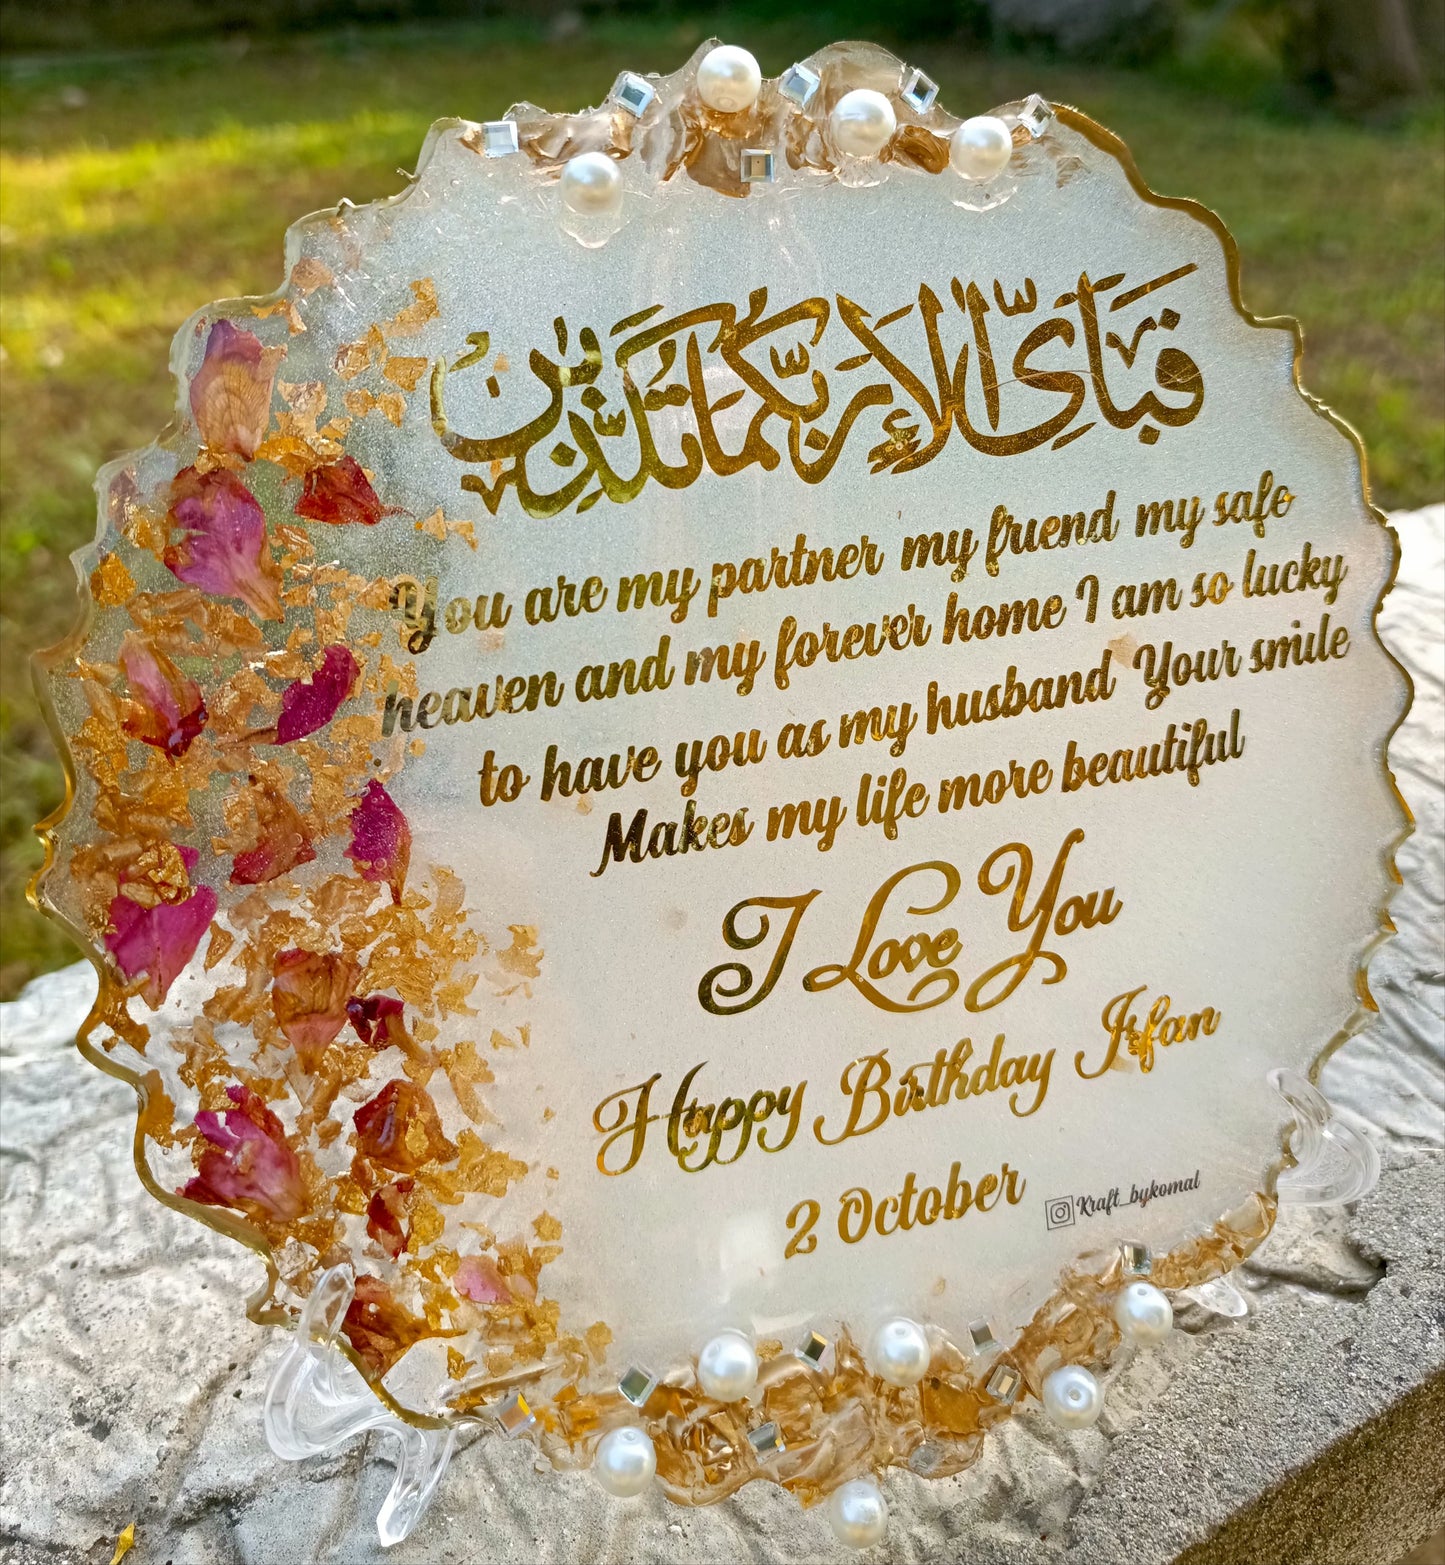 فَبِأَيِّ آلَاءِ رَبِّكُمَا تُكَذِّبَانِ
You are my partner my friend my safe
heaven and my forever home I am so lucky
to have you as my husband Your smile
Makes my life more beautiful
I Love You
Happy Birthday Irfan
2 October
Kraft_bykomal